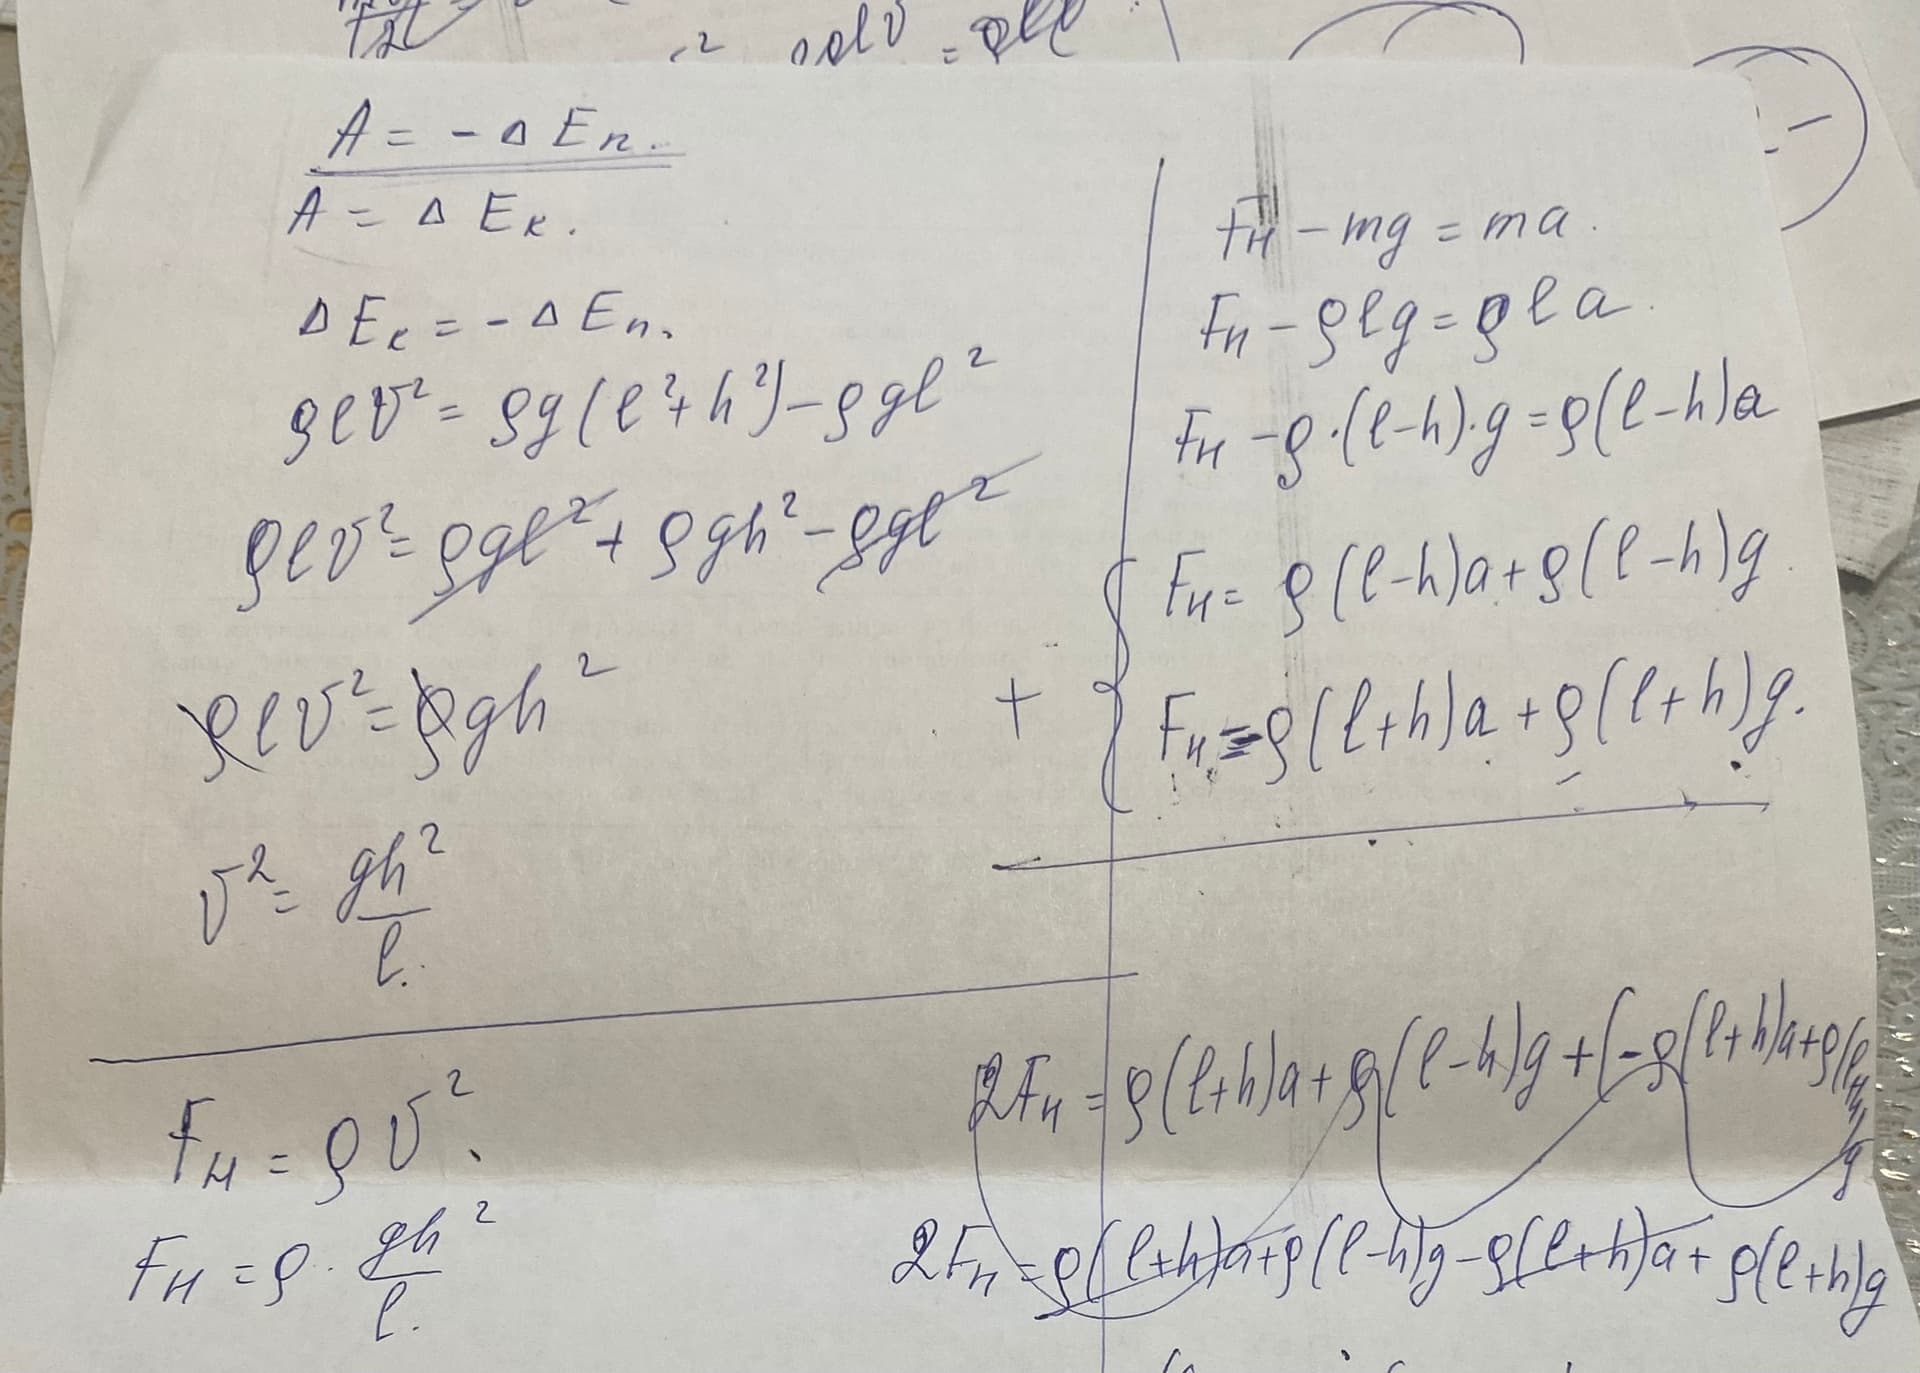 A = - Δ Eп.
A = Δ Eк.
Δ Eк = - Δ Eп.
ρℓv² = ρg(ℓ²+h²) - ρgℓ²
ρℓv² = ρgℓ² + ρgh² - ρgℓ²
ρℓv² = ρgh²
v² = gh²/ℓ.
Fн = ρv².
Fн = ρ · gh²/ℓ.
Fн - mg = ma.
Fн - ρℓg = ρℓa.
Fн - ρ·(ℓ-h)·g = ρ(ℓ-h)a
Fн = ρ(ℓ-h)a + ρ(ℓ-h)g
+
Fн = ρ(ℓ+h)a + ρ(ℓ+h)g.
2Fн = ρ(ℓ+h)a + ρ(ℓ-h)g + (-ρ(ℓ+h)a + ρ(ℓ+h)g
2Fн = ρ(ℓ+h)a + ρ(ℓ-h)g - ρ(ℓ+h)a + ρ(ℓ+h)g